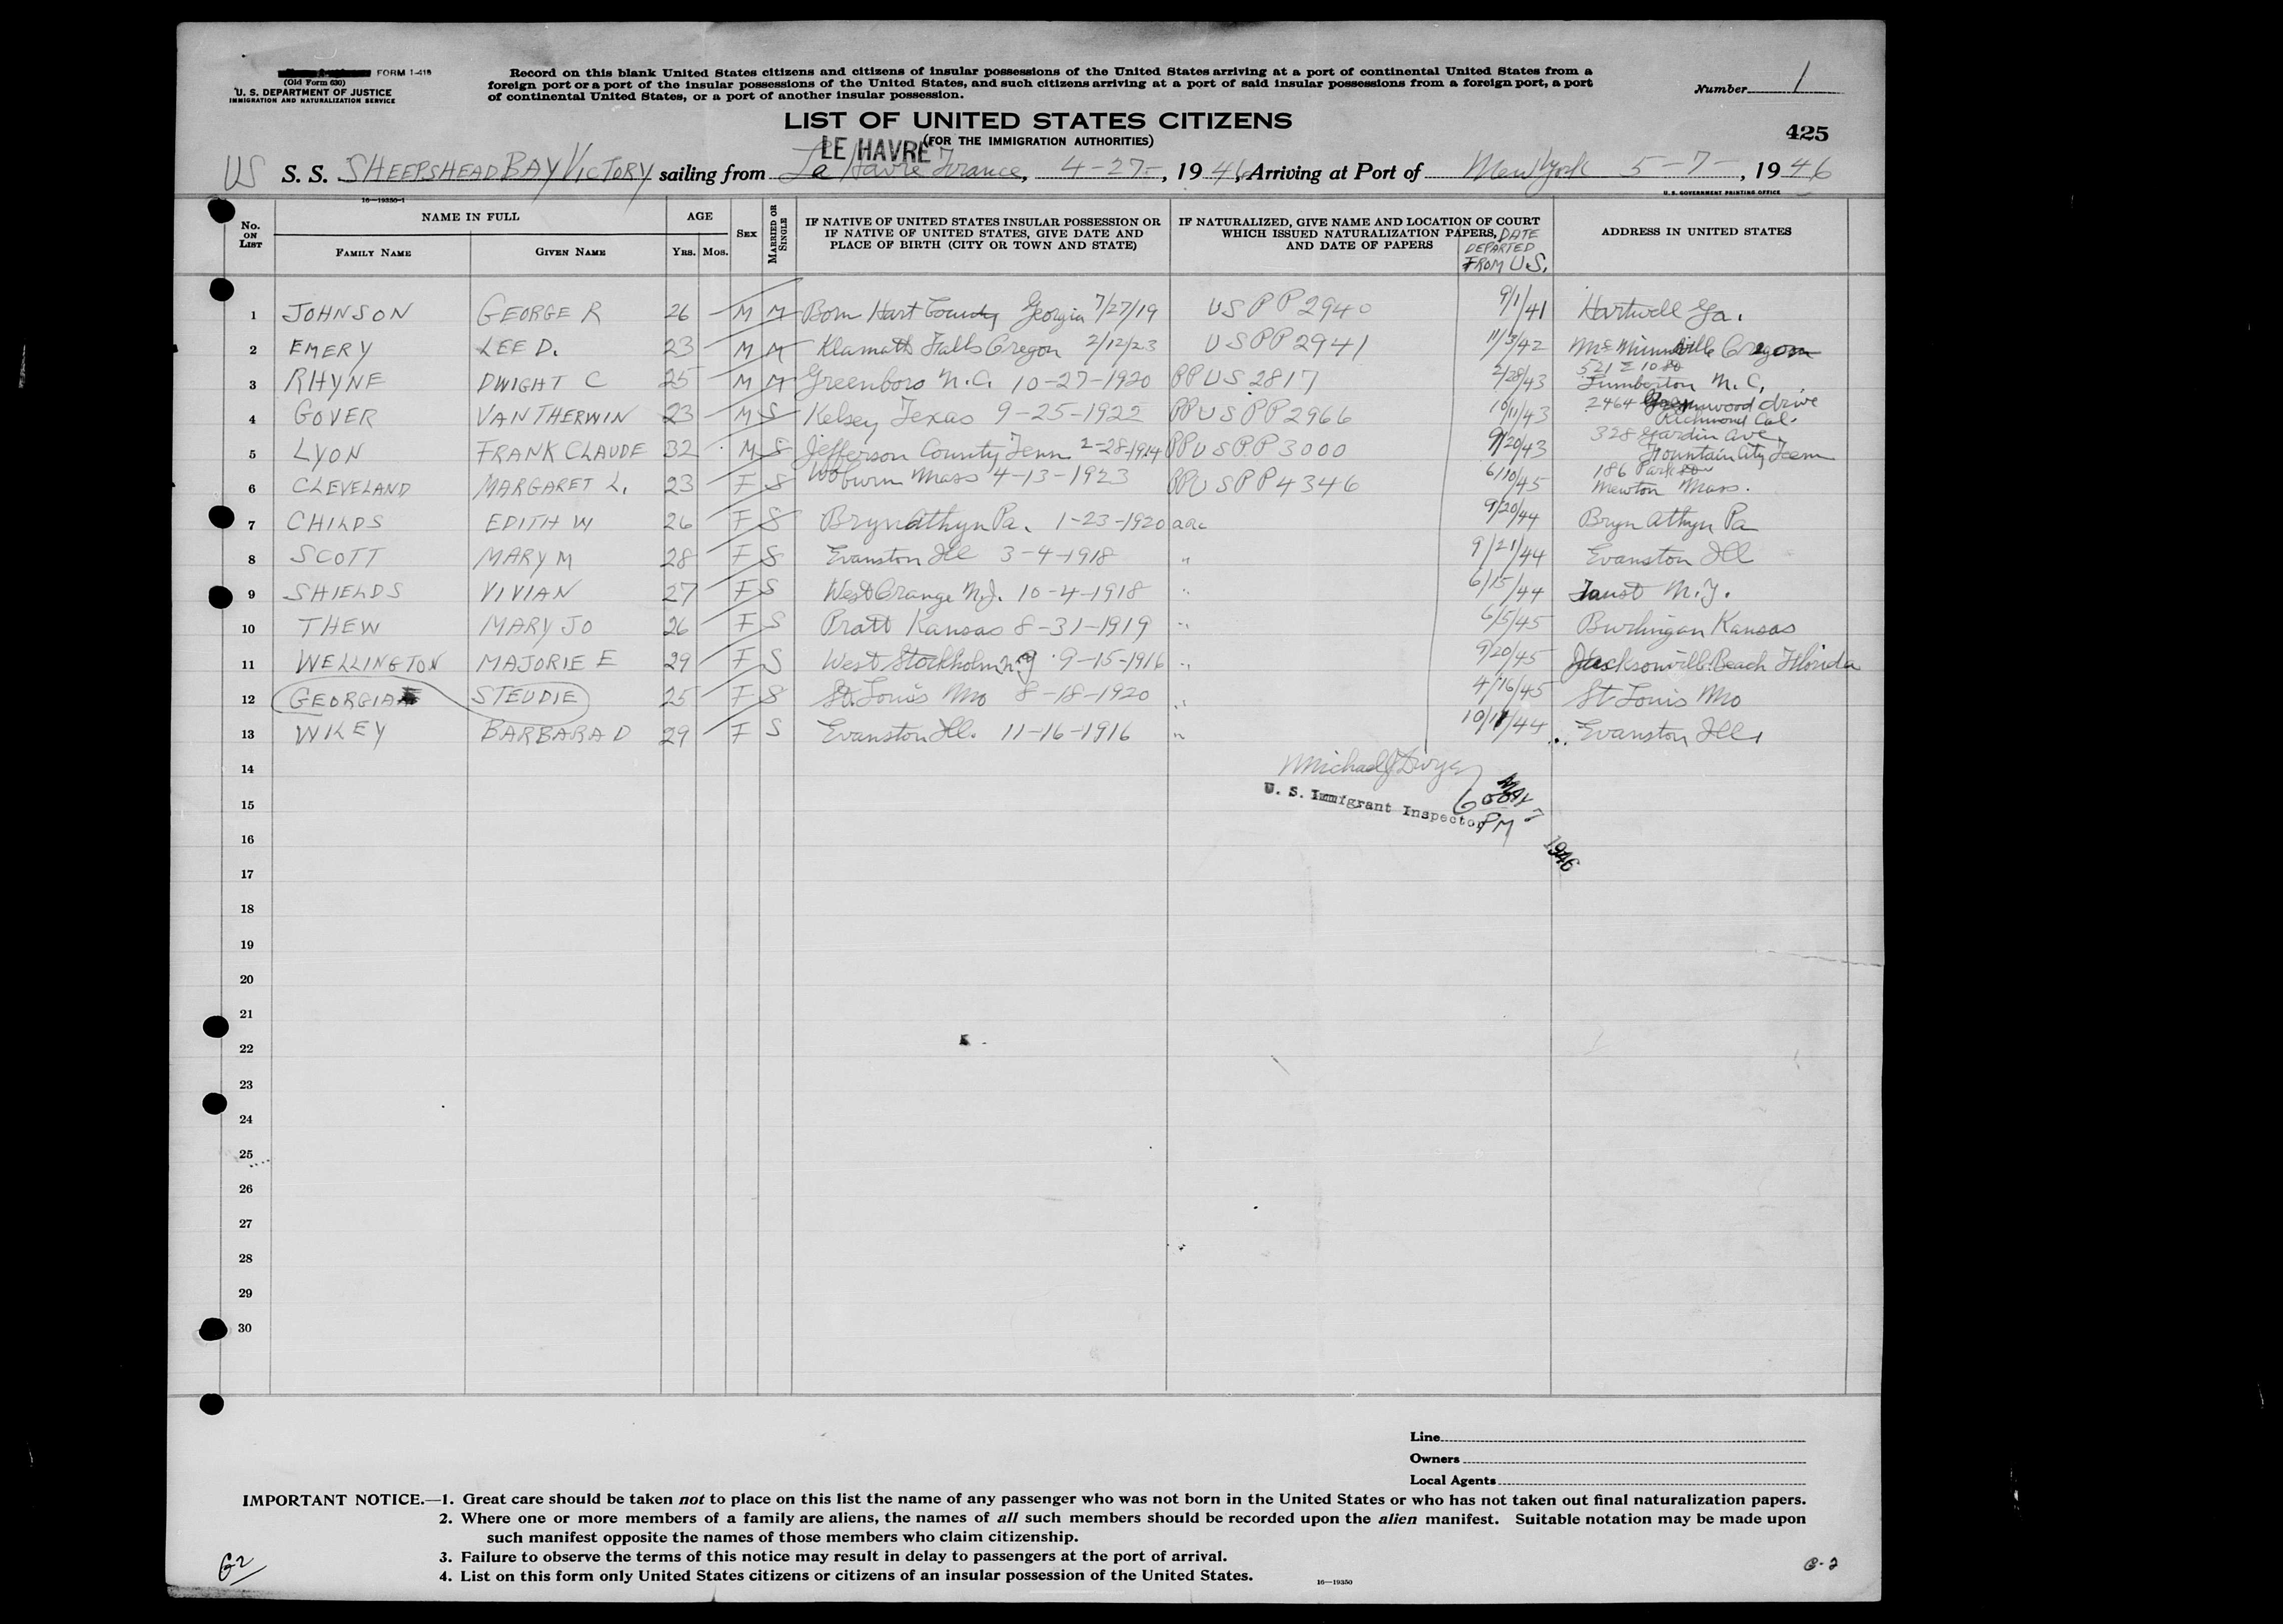 FORM I-418
(Old Form 630)
U. S. DEPARTMENT OF JUSTICE
IMMIGRATION AND NATURALIZATION SERVICE
Record on this blank United States citizens and citizens of insular possessions of the United States arriving at a port of continental United States from a
foreign port or a port of the insular possessions of the United States, and such citizens arriving at a port of said insular possessions from a foreign port, a port
of continental United States, or a port of another insular possession.
Number 1
LIST OF UNITED STATES CITIZENS
(FOR THE IMMIGRATION AUTHORITIES)
425
LE HAVRE
US S. S. SHEEPSHEAD BAY VICTORY sailing from Le Havre France, 4-27-, 1946, Arriving at Port of New York 5-7-, 1946
16—19350-1
U. S. GOVERNMENT PRINTING OFFICE
No. ON LIST
NAME IN FULL
FAMILY NAME
GIVEN NAME
AGE
YRS.
MOS.
SEX
MARRIED OR SINGLE
IF NATIVE OF UNITED STATES INSULAR POSSESSION OR
IF NATIVE OF UNITED STATES, GIVE DATE AND
PLACE OF BIRTH (CITY OR TOWN AND STATE)
IF NATURALIZED, GIVE NAME AND LOCATION OF COURT
WHICH ISSUED NATURALIZATION PAPERS,
AND DATE OF PAPERS
DATE
DEPARTED
FROM U.S.
ADDRESS IN UNITED STATES
1 JOHNSON GEORGE R 26 M M Born Hart County Georgia 7/27/19 US PP 2940 9/1/41 Hartwell Ga.
2 EMERY LEE D. 23 M M Klamath Falls Oregon 2/12/23 USPP 2941 11/3/42 McMinnville Oregon
3 RHYNE DWIGHT C 25 M M Greenboro N.C. 10-27-1920 PPUS 2817 2/28/43 521 E 10 St
Lumberton N.C.
4 GOVER VAN THERWIN 23 M S Kelsey Texas 9-25-1922 PPUSPP 2966 10/11/43 2464 drive
Richmond Cal.
5 LYON FRANK CLAUDE 32 M S Jefferson County Tenn 2-28-1914 PPUSPP 3000 9/20/43 328 Jardin Ave
Fountain City Tenn
6 CLEVELAND MARGARET L. 23 F S Woburn Mass 4-13-1923 PPUSPP 4346 6/10/45 186 Park
Newton Mass.
7 CHILDS EDITH W 26 F S Bryn Athyn Pa. 1-23-1920 aac 9/20/44 Bryn Athyn Pa
8 SCOTT MARY M 28 F S Evanston Ill 3-4-1918 " 9/21/44 Evanston Ill
9 SHIELDS VIVIAN 27 F S West Orange N.J. 10-4-1918 " 6/15/44 Faust N.Y.
10 THEW MARY JO 26 F S Pratt Kansas 8-31-1919 " 6/5/45 Burlingan Kansas
11 WELLINGTON MAJORIE E 29 F S West Stockholm N.Y 9-15-1916 " 9/20/45 Jacksonville Beach Florida
12 GEORGIA STEUDIE 25 F S St. Louis Mo 8-18-1920 " 4/16/45 St Louis Mo
13 WILEY BARBARA D 29 F S Evanston Ill. 11-16-1916 " 10/11/44 Evanston Ill.
14
Michael J Dwyer
U. S. Immigrant Inspector
MAY 7 1946
600 PM
15
16
17
18
19
20
21
22
23
24
25
26
27
28
29
30
Line
Owners
Local Agents
IMPORTANT NOTICE.—1. Great care should be taken not to place on this list the name of any passenger who was not born in the United States or who has not taken out final naturalization papers.
2. Where one or more members of a family are aliens, the names of all such members should be recorded upon the alien manifest. Suitable notation may be made upon
such manifest opposite the names of those members who claim citizenship.
3. Failure to observe the terms of this notice may result in delay to passengers at the port of arrival.
4. List on this form only United States citizens or citizens of an insular possession of the United States.
16—19350
G2
G-2